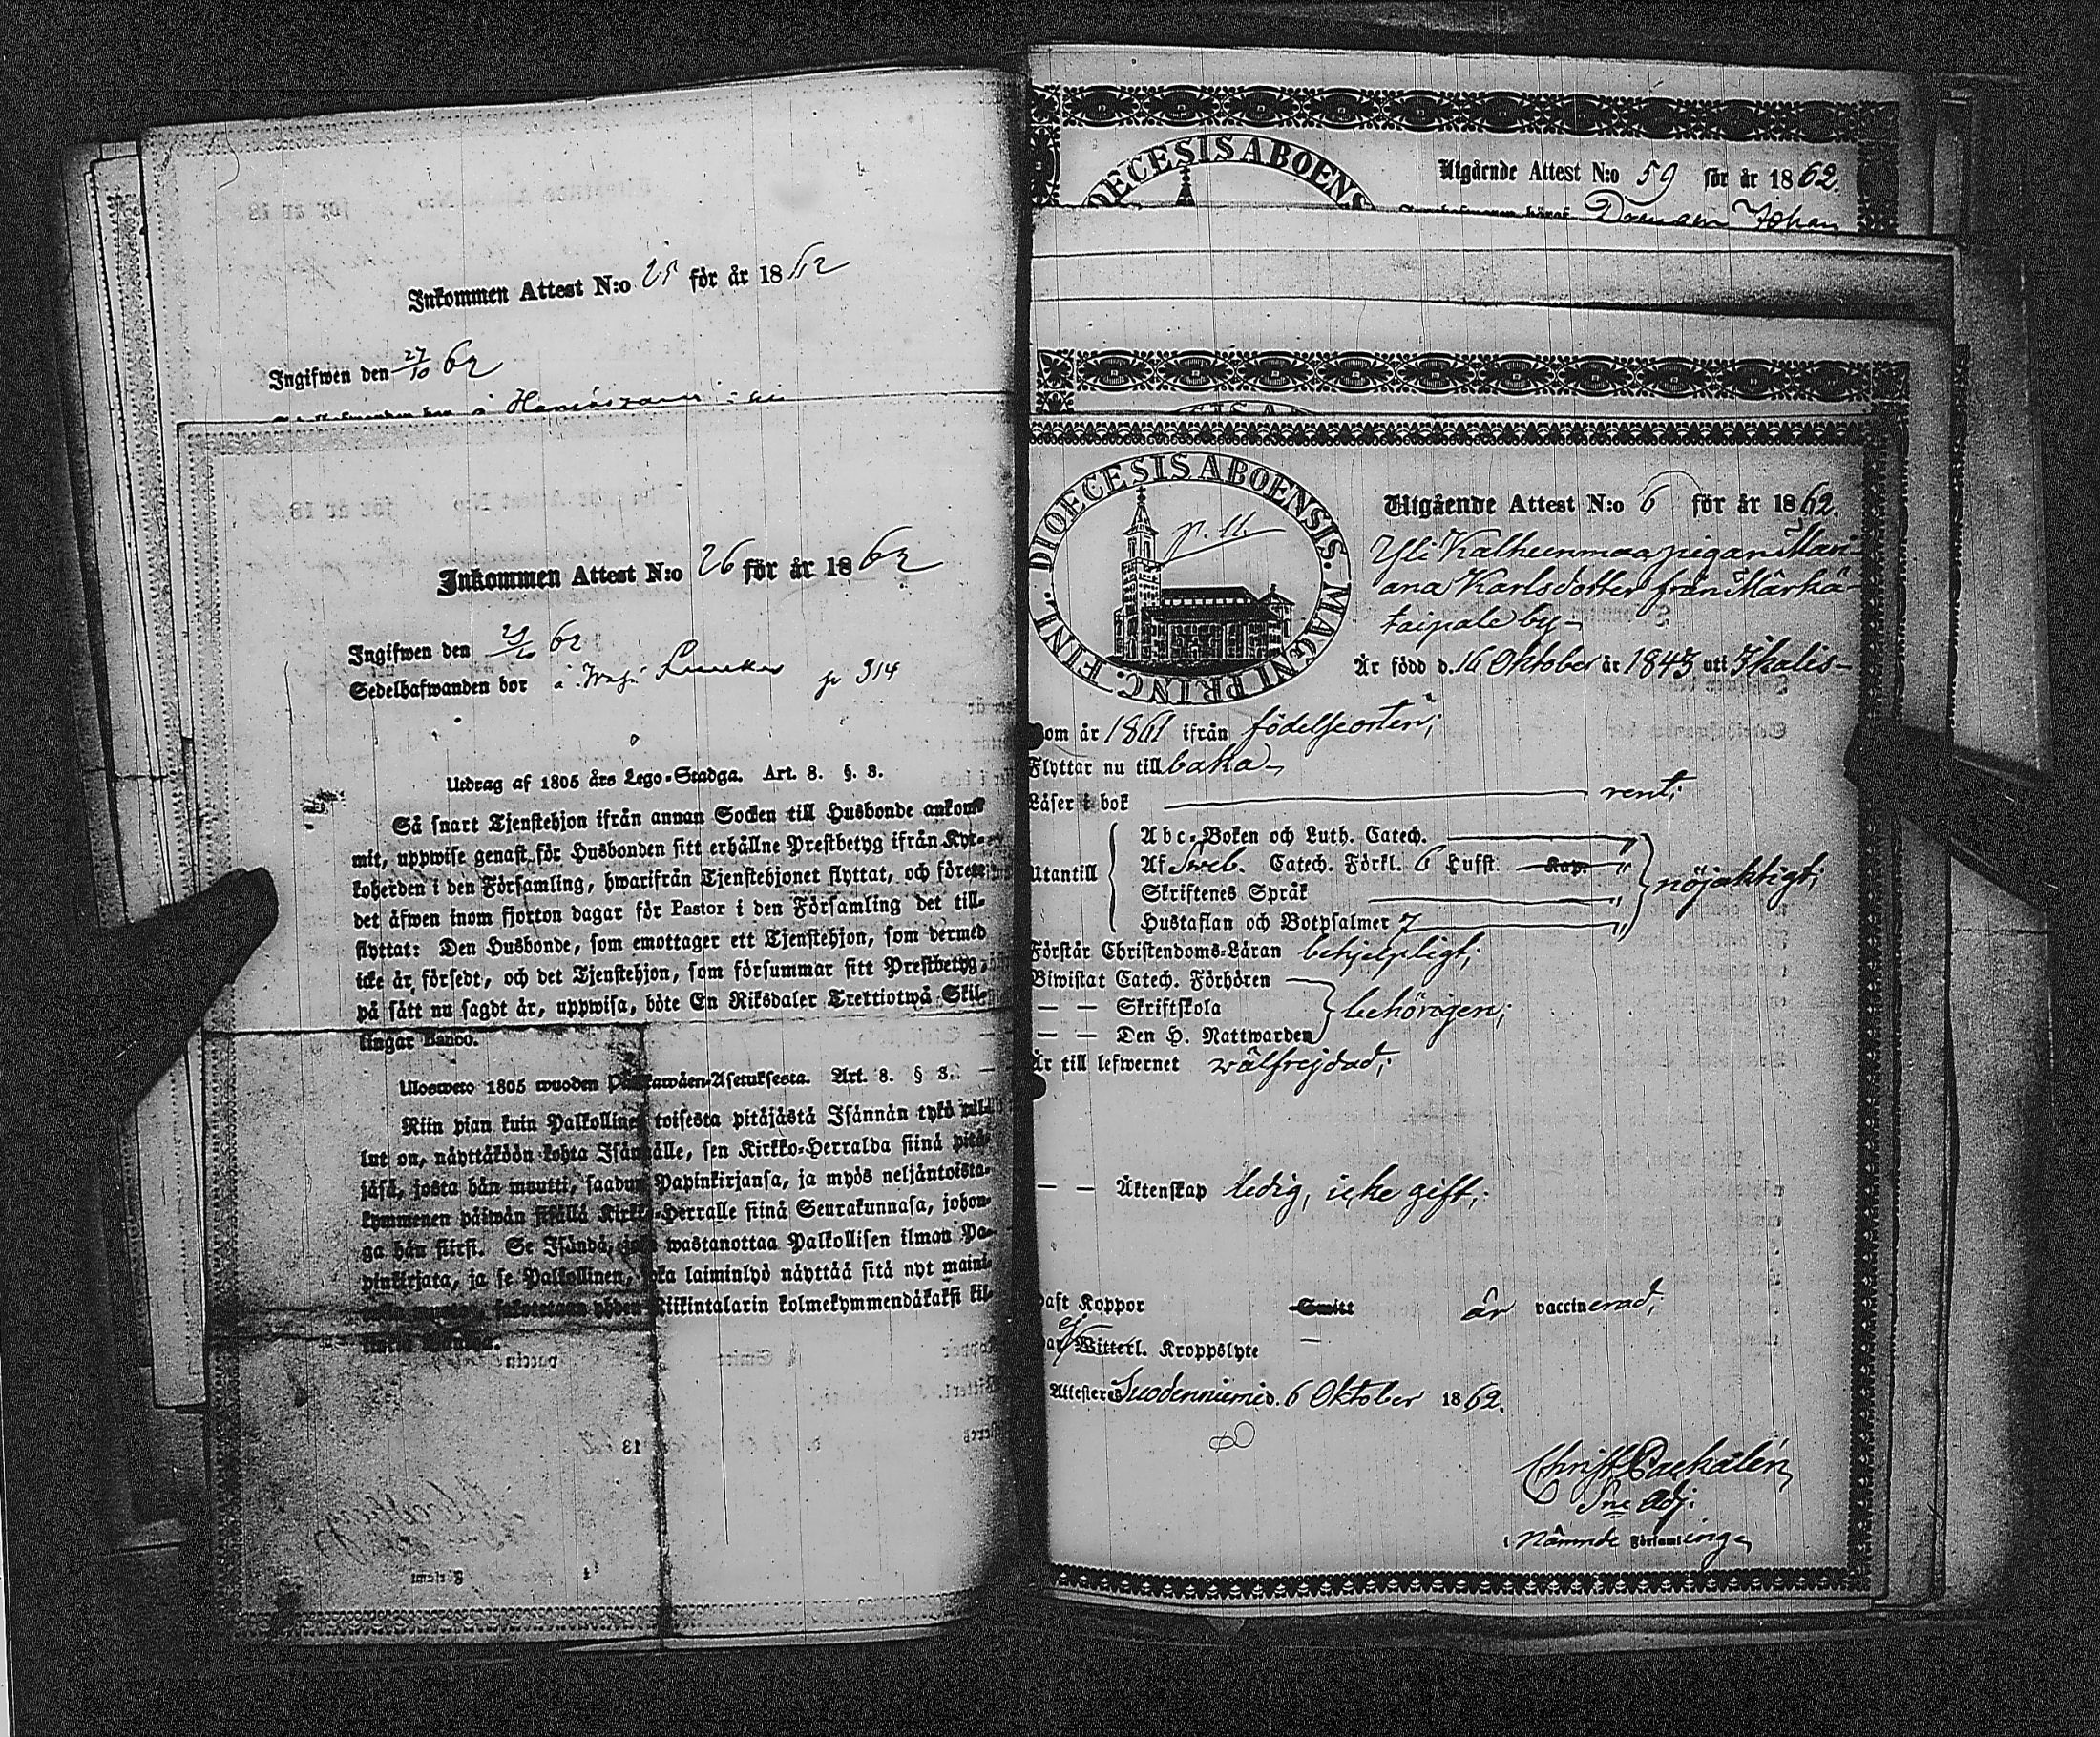 Inkommen Attest N:o 25 för år 1862
Ingifwen den 27/10 62
Inkommen Attest N:o 26 för år 1862
Ingifwen den 29/10 62
Sedelhafwanden bor å p 314
Utdrag af 1805 års Lego-Stadga. Art. 8. §. 8.
Så snart Tjenstehjon ifrån annan Socken till Husbonde ankom-
mit, uppwise genast för Husbonden sitt erhållne Prestbetyg ifrån Kyr-
koherden i den Församling, hwarifrån Tjenstehjonet flyttat, och förete
det äfwen inom fjorton dagar för Pastor i den Församling det till-
flyttat: Den Husbonde, som emottager ett Tjenstehjon, som dermed
icke är försedt, och det Tjenstehjon, som försummar sitt Prestbetyg,
på sätt nu sagdt är, uppwisa, böte En Riksdaler Trettiotwå Skil-
lingar Banco.
Ulosweto 1805 wuoden Asetuksesta. Art. 8. § 8.
Niin pian kuin Palkollinen toisesta pitäjästä Isännän tykö tul-
lut on, näyttäköön kohta Isännälle, sen Kirkko-Herralda siinä pitä-
jäsä, josta hän muutti, saadun Papinkirjansa, ja myös neljäntoista-
kymmenen päiwän sisällä Kirkko-Herralle siinä Seurakunnasa, johon-
ga hän siirsi. Se Isändä, joka wastanottaa Palkollisen ilman Pa-
pinkirjata, ja se Palkollinen, joka laiminlyö näyttää sitä nyt maini-
yhden Riikintalarin kolmekymmendäkaksi kil-
DIOECESIS ABOENS
Utgående Attest N:o 59 för år 1862.
Drengen Johan
DIOECESIS ABOENSIS. MAGNI PRINC. FINL.
Utgående Attest N:o 6 för år 1862.
Yli Kalheenmaa pigan Mari-
ana Karlsdotter från Märkä-
taipale by-
Är född d. 16 Oktober år 1843 uti Ikalis-
om år 1861 ifrån födelseorten;
Flyttar nu tillbaka
Läser i bok rent;
Abc-Boken och Luth. Catech. "
Utantill Af Sveb. Catech. Förkl. 6 Lufst. Kap. " nöjaktigt;
Skriftenes Språk "
Hustaflan och Botpsalmer 7 "
Förstår Christendoms-Läran behjelpligt;
Biwistat Catech. Förhören
— — Skriftskola behörigen;
— — Den H. Nattwarden
Är till lefwernet wälfrejdad;
— — Äktenskap ledig, icke gift;
haft Koppor Smitt är vaccinerad;
har ej Witterl. Kroppslyte —
Attesteras Suodenniemi d. 6 Oktober 1862.
Christ Packalén
Sne Adj.
i Nämnde Församlinge